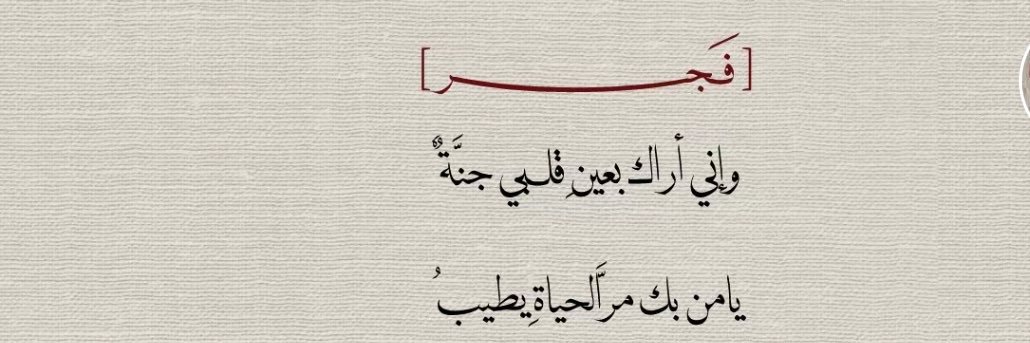 [فَجـــــر]
وإني أراك بعينِ قلـبي جنَّةٌ
يامن بك مرَّالحياةِ يطيبُ